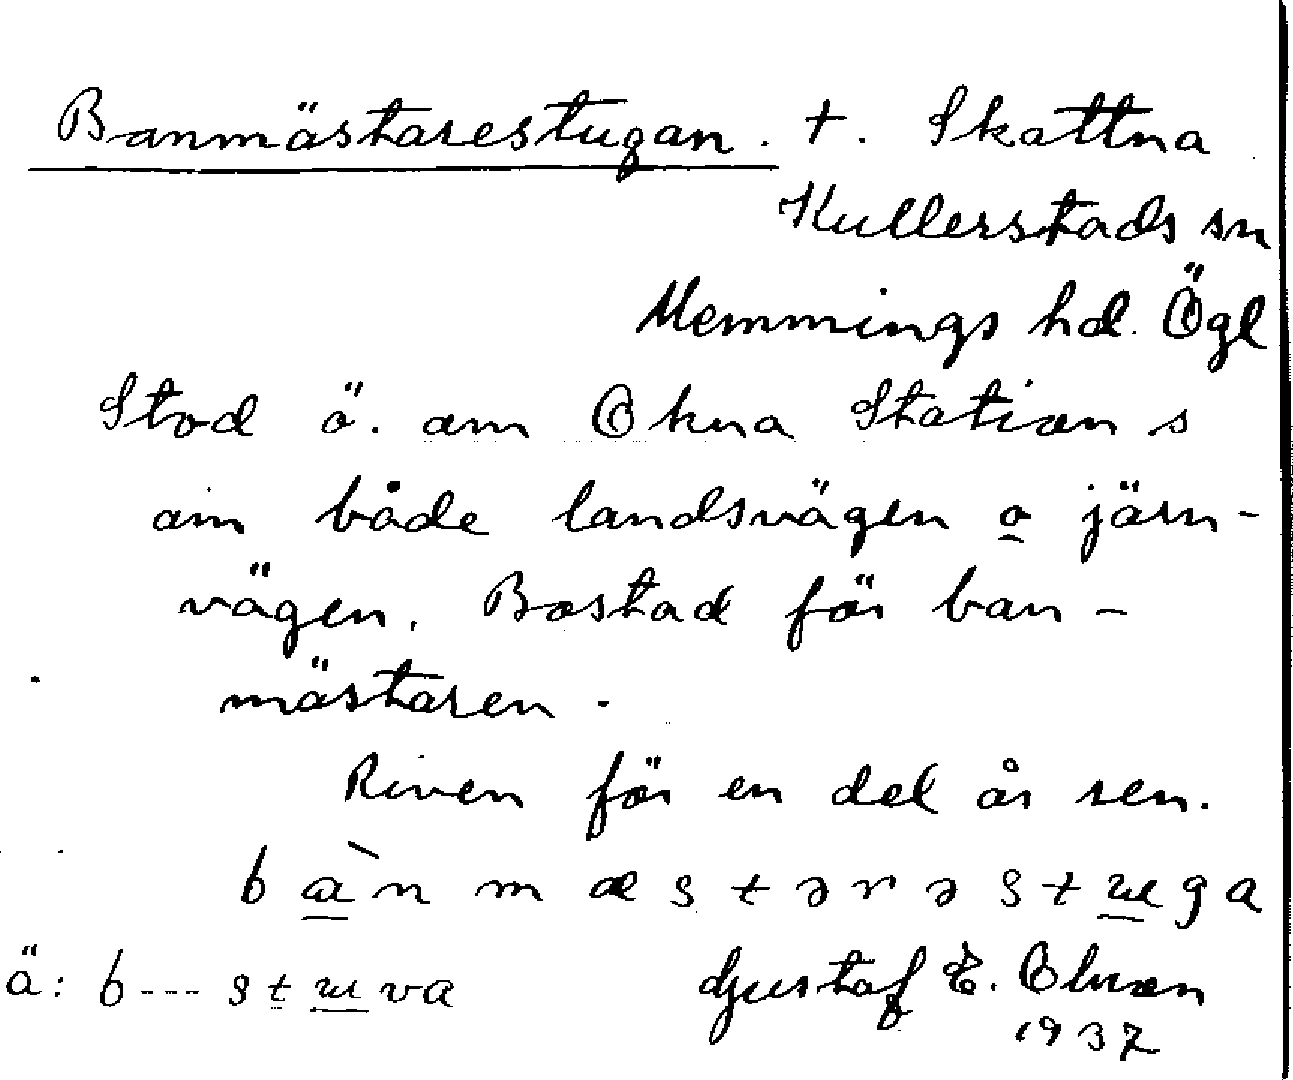 Banmästarestugan. +. Skattna
Kullerstads sn
Memmings hd. Ögl
Stod ö. om Okna Station s
om både landsvägen o järn-
vägen. Bostad för ban-
mästaren.
Riven för en del år sen.
b a ̀ n m æ s t ə r ə s t ɯ g a
ä: b --- s t ɯ v a
Gustaf E. Olson
1937